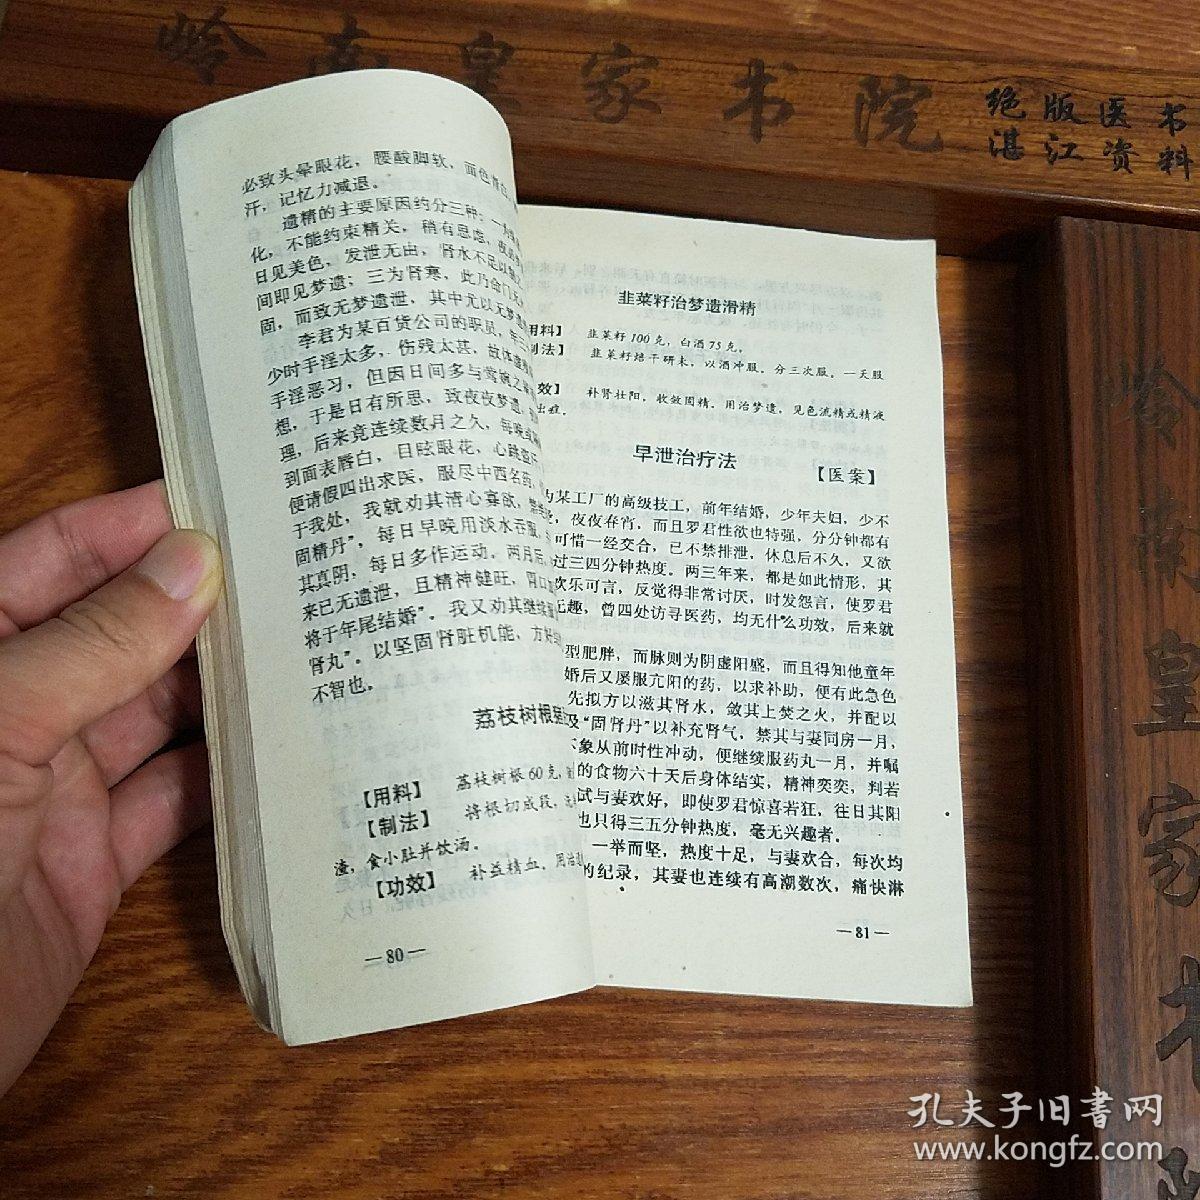 岭南皇家书院
绝版医书
湛江资料
必致头晕眼花，腰酸脚软，面色青
汗，记忆力减退。
遗精的主要原因约分三种：一为
化，不能约束精关，稍有思虑，
日见美色，发泄无由，肾水不足以
间即见梦遗；三为肾寒，此乃命门
固，而致无梦遗泄，其中尤以无梦
李君为某百货公司的职员，年三
少时手淫太多，伤残太甚，故体
手淫恶习，但因日间多与莺婉之
想，于是日有所思，致夜夜梦遗，
理，后来竟连续数月之久，每晚或
到面表唇白，目眩眼花，心跳
便请假四出求医，服尽中西名药，
于我处，我就劝其清心寡欲，
固精丹”，每日早晚用淡水吞服，
其真阴，每日多作运动，两月后，
来已无遗泄，且精神健旺，胃口
将于年尾结婚”。我又劝其继续
肾丸”。以坚固肾脏机能，方
不智也。
荔枝树根
【用料】 荔枝树根60克，
【制法】 将根切成段，
渣，食小肚并饮汤。
【功效】 补益精血，用治
—80—
韭菜籽治梦遗滑精
用料】 韭菜籽100克，白酒75克。
制法】 韭菜籽焙干研末，以酒冲服。分三次服。一天服
效】 补肾壮阳，收敛固精。用治梦遗，见色流精或精液
出症。
早泄治疗法
【医案】
为某工厂的高级技工，前年结婚，少年夫妇，少不
，夜夜春宵，而且罗君性欲也特强，分分钟都有
可惜一经交合，已不禁排泄，休息后不久，又欲
过三四分钟热度。两三年来，都是如此情形，其
欢乐可言，反觉得非常讨厌，时发怨言，使罗君
无趣，曾四处访寻医药，均无什么功效，后来就
型肥胖，而脉则为阴虚阳盛，而且得知他童年
婚后又屡服亢阳的药，以求补助，便有此急色
先拟方以滋其肾水，敛其上焚之火，并配以
及“固肾丹”以补充肾气，禁其与妻同房一月，
象从前时性冲动，便继续服药丸一月，并嘱
的食物六十天后身体结实，精神奕奕，判若
试与妻欢好，即使罗君惊喜若狂，往日其阳
也只得三五分钟热度，毫无兴趣者。
一举而坚，热度十足，与妻欢合，每次均
的纪录，其妻也连续有高潮数次，痛快淋
—81—
岭南皇家书
孔夫子旧书网
www.kongfz.com